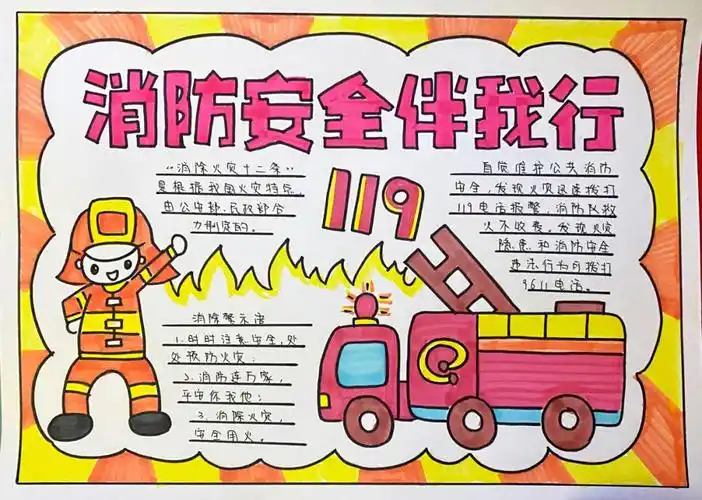 消防安全伴我行
119
"消除火灾十二条"
是根据我国火灾特点
由公安部、民政部合
力制定的。
自觉维护公共消防
安全,发现火灾迅速拨打
119电话报警,消防队救
火不收费。发现火灾
隐患和消防安全
违法行为可拨打
9611电话。
消防警示语
1.时时注意安全,处
处预防火灾;
2、消防连万家,
平安你我他;
3、消除火灾,
安全用火。